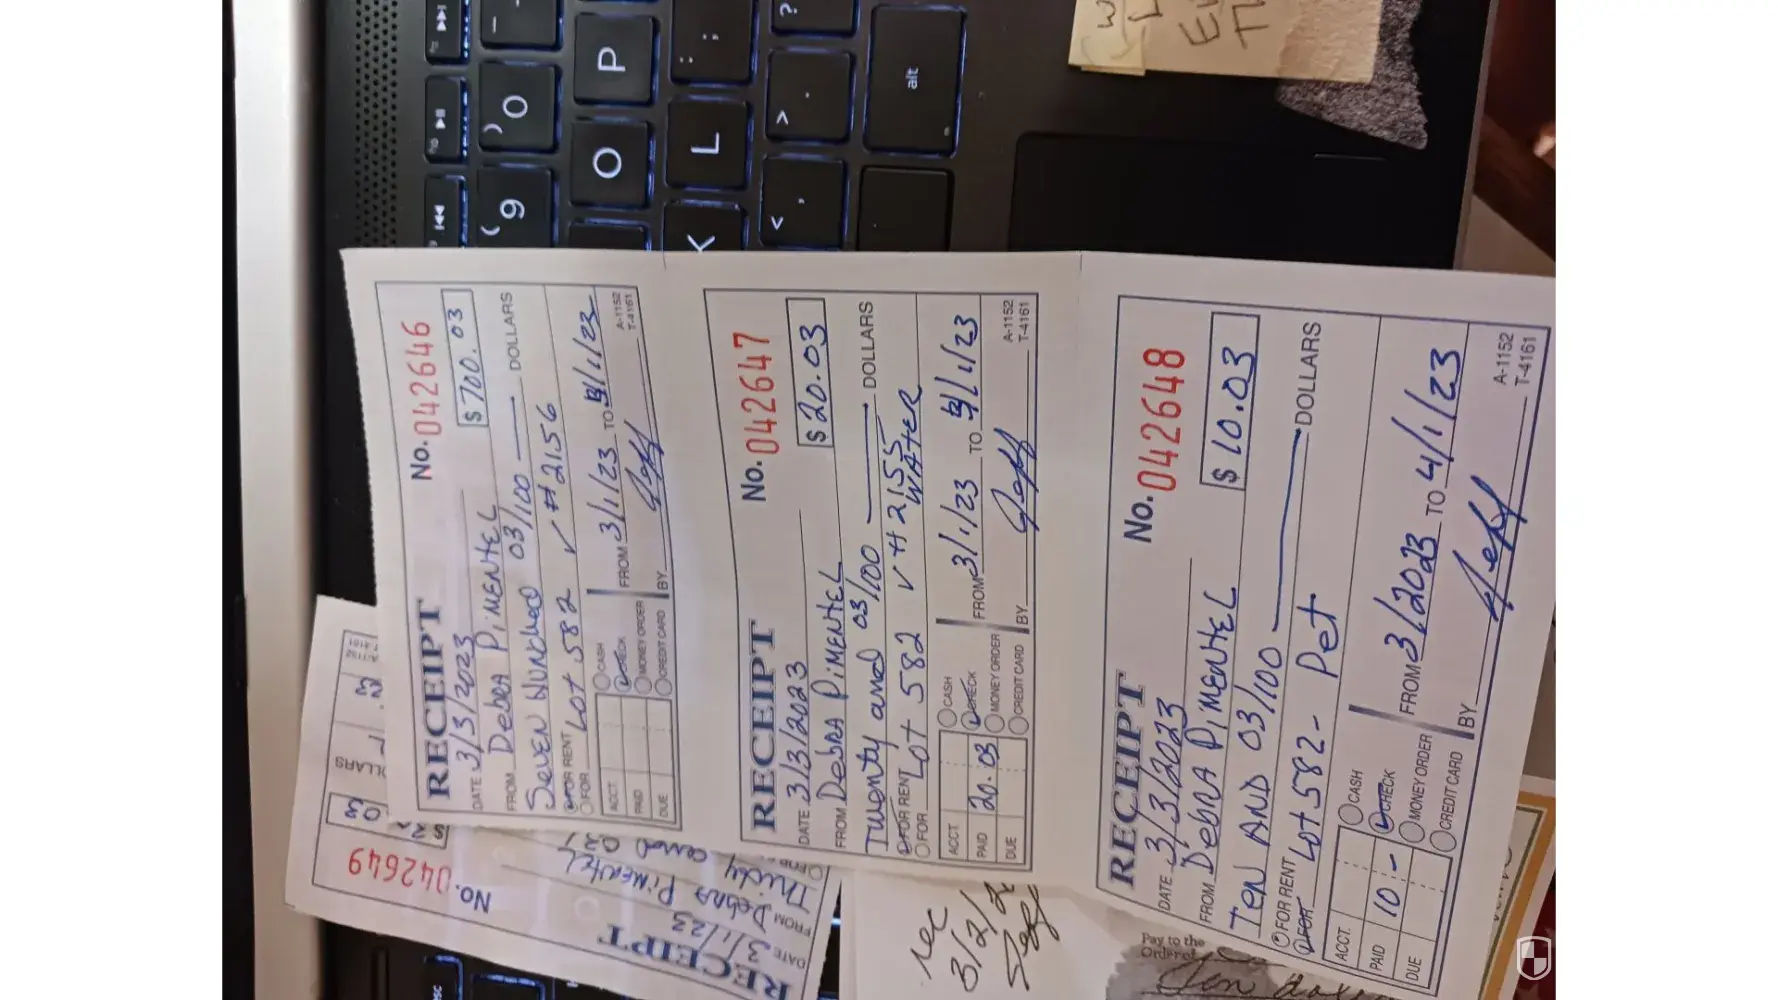 RECEIPT No. 042646
DATE 3/3/2023
FROM Debra Pimentel $700.03
Seven Hundred 03/100 DOLLARS
FOR RENT
FOR Lot 582 ✓ # 2156
ACCT.
PAID
DUE
CASH
CHECK
MONEY ORDER
CREDIT CARD
FROM 3/1/23 TO 4/1/23
BY Jeff
A-1152
T-4161
RECEIPT No. 042647
DATE 3/3/2023
FROM Debra Pimentel $20.03
Twenty and 03/100 DOLLARS
FOR RENT
FOR Lot 582 ✓ # 2155
WATER
ACCT.
PAID 20.03
DUE
CASH
CHECK
MONEY ORDER
CREDIT CARD
FROM 3/1/23 TO 4/1/23
BY Jeff
A-1152
T-4161
RECEIPT No. 042648
DATE 3/3/2023
FROM Debra Pimentel $10.03
Ten And 03/100 DOLLARS
FOR RENT
FOR Lot 582 - Pet
ACCT.
PAID 10 -
DUE
CASH
CHECK
MONEY ORDER
CREDIT CARD
FROM 3/2023 TO 4/1/23
BY Jeff
A-1152
T-4161
RECEIPT No. 042649
DATE 3/1/23
FROM Debra Pimentel
and
rec
3/2/
Jeff
Pay to the
Order of
Ten
( 9
) 0
O
P
K
L
: ;
< ,
> .
?
alt